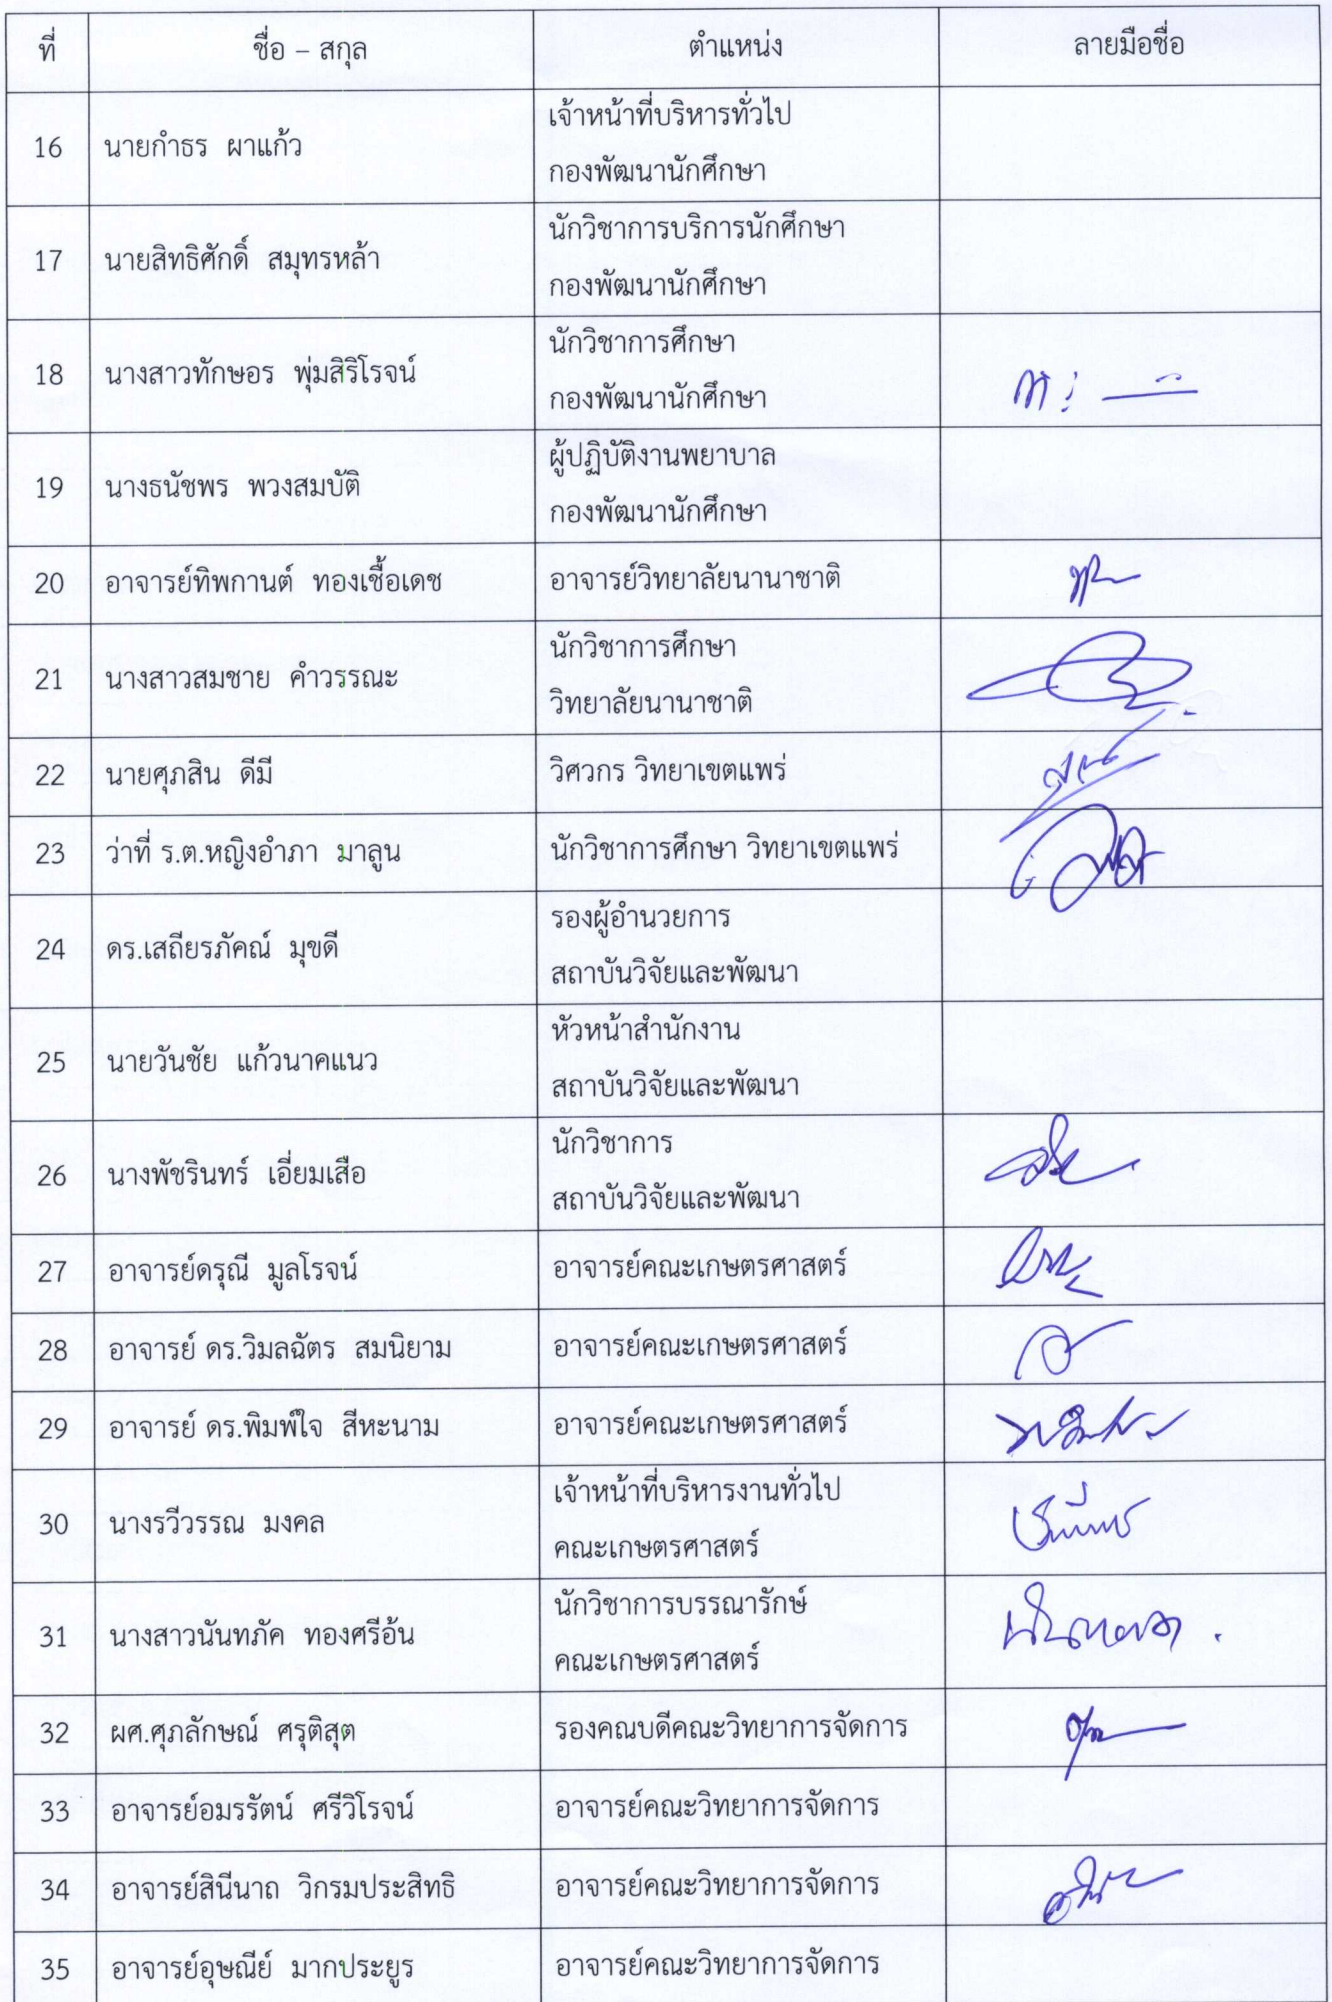 ที่ ชื่อ – สกุล ตำแหน่ง ลายมือชื่อ
16 นายกำธร ผาแก้ว เจ้าหน้าที่บริหารทั่วไป
กองพัฒนานักศึกษา
17 นายสิทธิศักดิ์ สมุทรหล้า นักวิชาการบริการนักศึกษา
กองพัฒนานักศึกษา
18 นางสาวทักษอร พุ่มสิริโรจน์ นักวิชาการศึกษา
กองพัฒนานักศึกษา
19 นางธนัชพร พวงสมบัติ ผู้ปฏิบัติงานพยาบาล
กองพัฒนานักศึกษา
20 อาจารย์ทิพกานต์ ทองเชื้อเดช อาจารย์วิทยาลัยนานาชาติ
21 นางสาวสมชาย คำวรรณะ นักวิชาการศึกษา
วิทยาลัยนานาชาติ
22 นายศุภสิน ดีมี วิศวกร วิทยาเขตแพร่
23 ว่าที่ ร.ต.หญิงอำภา มาลูน นักวิชาการศึกษา วิทยาเขตแพร่
24 ดร.เสถียรภัคณ์ มุขดี รองผู้อำนวยการ
สถาบันวิจัยและพัฒนา
25 นายวันชัย แก้วนาคแนว หัวหน้าสำนักงาน
สถาบันวิจัยและพัฒนา
26 นางพัชรินทร์ เอี่ยมเสือ นักวิชาการ
สถาบันวิจัยและพัฒนา
27 อาจารย์ดรุณี มูลโรจน์ อาจารย์คณะเกษตรศาสตร์
28 อาจารย์ ดร.วิมลฉัตร สมนิยาม อาจารย์คณะเกษตรศาสตร์
29 อาจารย์ ดร.พิมพ์ใจ สีหะนาม อาจารย์คณะเกษตรศาสตร์
30 นางรวีวรรณ มงคล เจ้าหน้าที่บริหารงานทั่วไป
คณะเกษตรศาสตร์
31 นางสาวนันทภัค ทองศรีอ้น นักวิชาการบรรณารักษ์
คณะเกษตรศาสตร์
32 ผศ.ศุภลักษณ์ ศรุติสุต รองคณบดีคณะวิทยาการจัดการ
33 อาจารย์อมรรัตน์ ศรีวิโรจน์ อาจารย์คณะวิทยาการจัดการ
34 อาจารย์สินีนาถ วิกรมประสิทธิ อาจารย์คณะวิทยาการจัดการ
35 อาจารย์อุษณีย์ มากประยูร อาจารย์คณะวิทยาการจัดการ